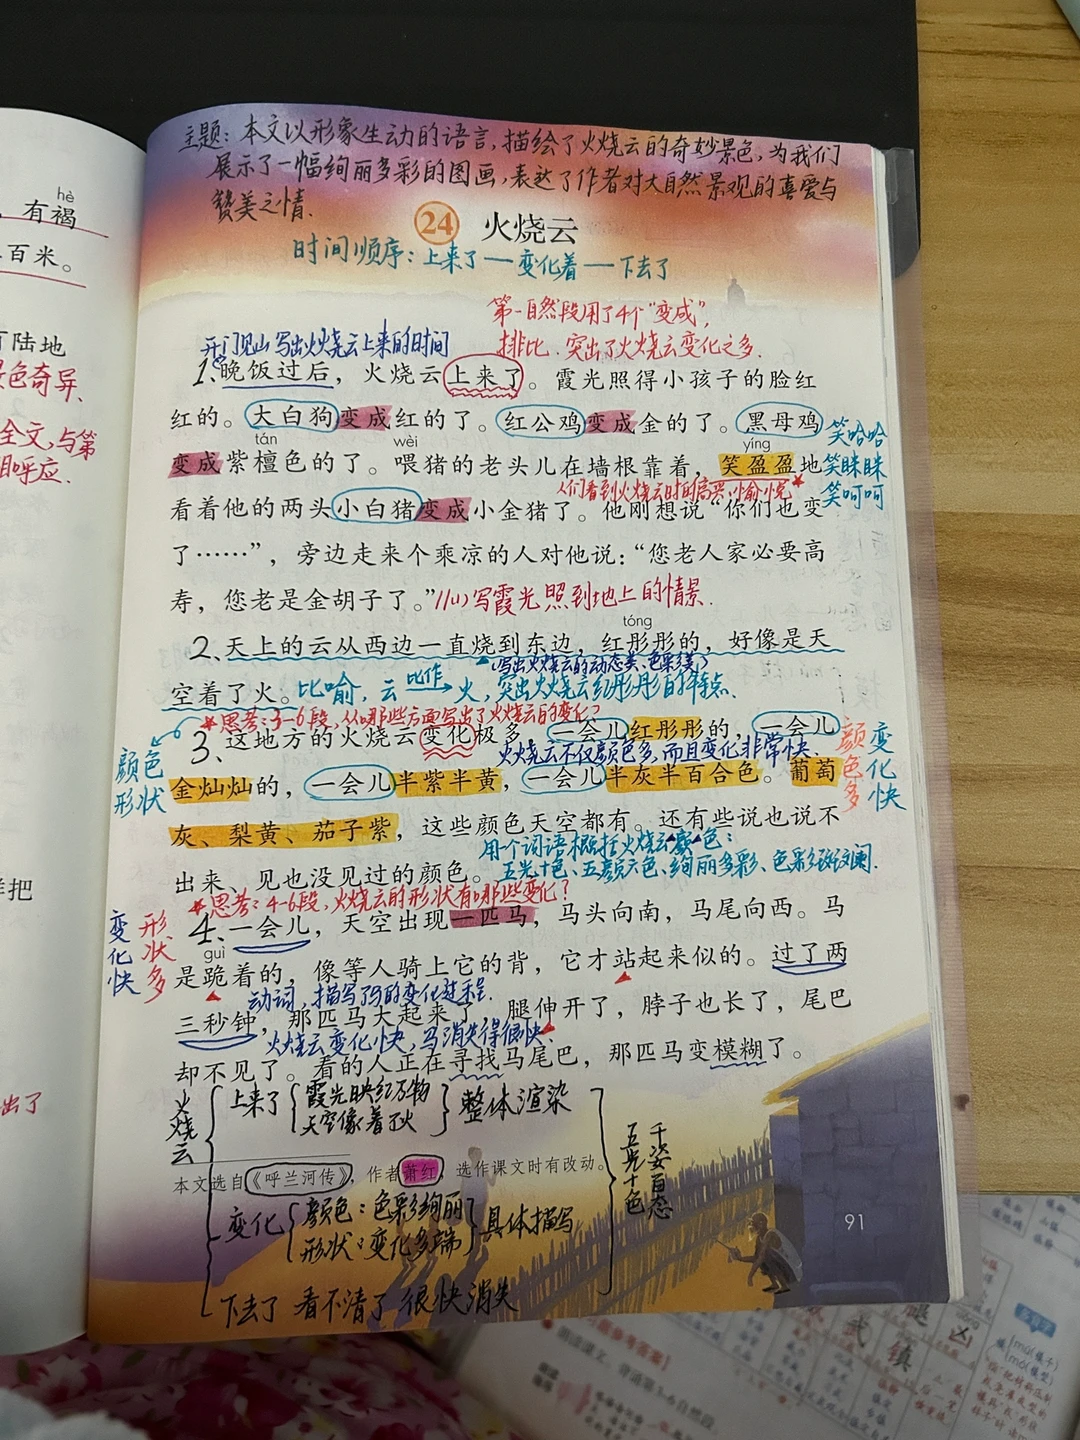 主题：本文以形象生动的语言，描绘了火烧云的奇妙景色，为我们
展示了一幅绚丽多彩的图画，表达了作者对大自然景观的喜爱与
赞美之情.
24 火烧云
时间顺序：上来了—变化着—下去了
第一自然段用了4个“变成”，
排比．突出了火烧云变化之多.
开门见山写出火烧云上来的时间
1、晚饭过后，火烧云上来了。霞光照得小孩子的脸红
红的。大白狗变成红的了。红公鸡变成金的了。黑母鸡
笑哈哈
tán wèi yíng
变成紫檀色的了。喂猪的老头儿在墙根靠着，笑盈盈地
笑眯眯
笑呵呵
看着他的两头小白猪变成小金猪了。他刚想说“你们也变
了……”，旁边走来个乘凉的人对他说：“您老人家必要高
寿，您老是金胡子了。”
写霞光照到地上的情景.
tóng
2、天上的云从西边一直烧到东边，红彤彤的，好像是天
(写出火烧云的动态美、色彩美)
空着了火。
比喻．云 比作 火，突出火烧云红彤彤的特点.
思考：3-6段，从哪些方面写出了火烧云的变化？
颜色
形状
3、这地方的火烧云变化极多，一会儿红彤彤的，一会儿
火烧云不仅颜色多，而且变化非常快．
金灿灿的，一会儿半紫半黄，一会儿半灰半百合色。葡萄
颜色多
变化快
灰、梨黄、茄子紫，这些颜色天空都有。还有些说也说不
用个词语概括火烧云颜色：
出来、见也没见过的颜色。
五光十色、五颜六色、绚丽多彩、色彩斑斓.
思考：4-6段，火烧云的形状有哪些变化？
变化快
形状多
4、一会儿，天空出现一匹马，马头向南，马尾向西。马
guì
是跪着的，像等人骑上它的背，它才站起来似的。过了两
动词，描写了马的变化过程.
三秒钟，那匹马大起来了，腿伸开了，脖子也长了，尾巴
火烧云变化快，马消失得很快.
却不见了。看的人正在寻找马尾巴，那匹马变模糊了。
火烧云
上来了
霞光映红万物
天空像着了火
整体渲染
本文选自《呼兰河传》，作者萧红，选作课文时有改动。
变化
颜色：色彩绚丽
形状：变化多端
具体描写
下去了 看不清了 很快消失
五光十色
千姿百态
91
hè
有褐
百米。
陆地
色奇异、
全文，与第
呼应.
把
出了
武
镇
腿
凶